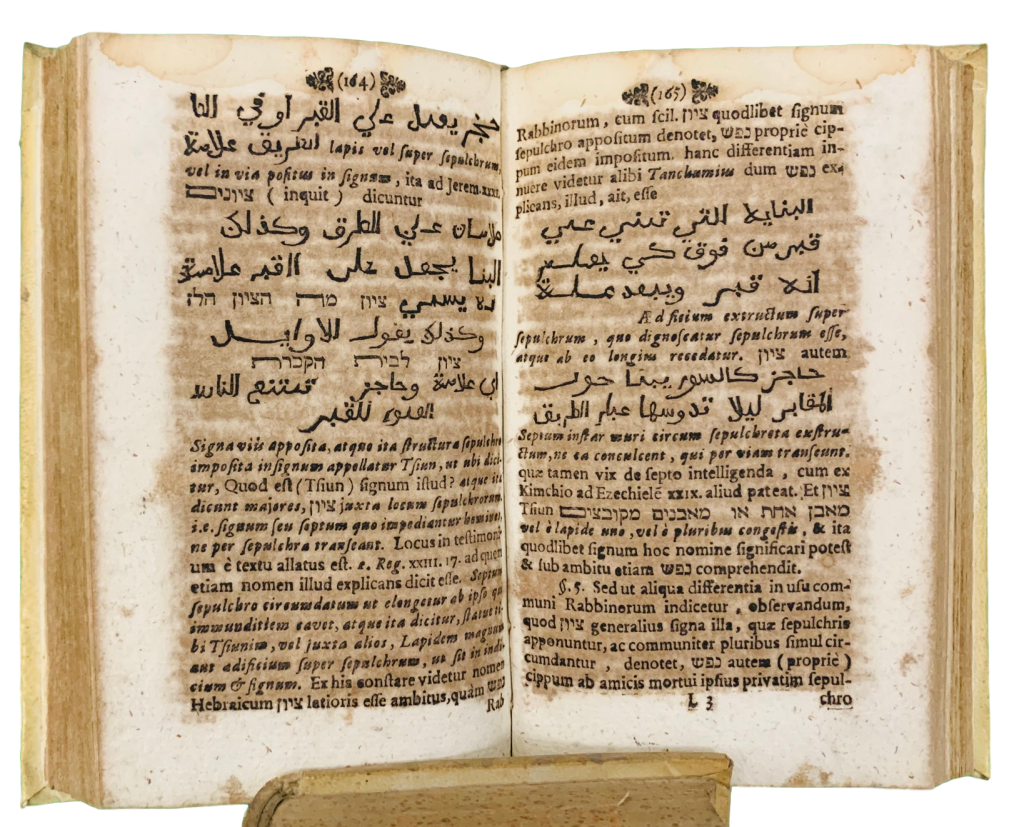 (164)
حجر يعمل علي القبر او في
الطريق علامة lapis vel super sepulchrum,
vel in via positus in signum, ita ad Jerem. xxxi.
ציונים ( inquit ) dicuntur
علي الطرق وكذلك
البنا يجعل علي القبر علامة
يسمي ציון מה הציון הלז
وكذلك يقول الاوايل
ציון לבית הקברות
اي علامة وحاجز تمتنع الناس
للقبر
Signa viis apposita, atque ita structura sepulchro
imposita in signum appellatur Tsiun, ut ubi dici-
tur, Quod est (Tsiun) signum istud? atque ita
dicunt majores, ציון juxta locum sepulchrorum,
i.e. signum seu septum quo impediantur homines,
ne per sepulchra transeant. Locus in testimoni-
um è textu allatus est. 2. Reg. XXIII. 17. ad quem
etiam nomen illud explicans dicit esse. Septum
sepulchro circumdatum ut elongetur ab ipso qui
immunditiem cavet, atque ita dicitur, statue ti-
bi Tsiunim, vel juxta alios, Lapidem magnum
aut ædificium super sepulchrum, ut sit in indi-
cium & signum. Ex his constare videtur nomen
Hebraicum ציון latioris esse ambitus, quàm נפש
Rab
(165)
Rabbinorum, cum scil. ציון quodlibet signum
sepulchro appositum denotet, נפש propriè cip-
pum eidem impositum. hanc differentiam in-
nuere videtur alibi Tanchumius dum נפש ex-
plicans, illud, ait, esse
البناية التي تبني علي
قبر من فوق كي يعلم
انه قبر ويبعد عنه
Ædificium extructum super
sepulchrum, quo dignoscatur sepulchrum esse,
atque ab eo longius recedatur. ציון autem
حاجز كالسور يبنا حول
المقابر ليلا تدوسها عبار الطريق
Septum instar muri circum sepulchreta exstru-
ctum, ne ea conculcent, qui per viam transeunt.
quæ tamen vix de septo intelligenda, cum ex
Kimchio ad Ezechielē XXIX. aliud pateat. Et ציון
Tsiun מאבן אחת או מאבנים מקובצים
vel è lapide uno, vel è pluribus congestis, & ita
quodlibet signum hoc nomine significari potest
& sub ambitu etiam נפש comprehendit.
§. 5. Sed ut aliqua differentia in usu com-
muni Rabbinorum indicetur, observandum,
quod ציון generalius signa illa, quæ sepulchris
apponuntur, ac communiter pluribus simul cir-
cumdantur, denotet, נפש autem (propriè)
cippum ab amicis mortui ipsius privatim sepul-
L 3 chro